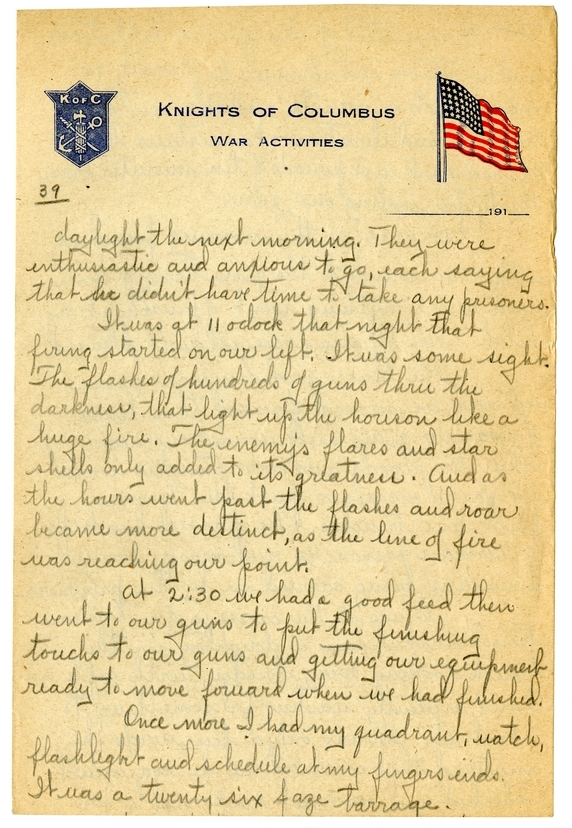 K OF C
KNIGHTS OF COLUMBUS
WAR ACTIVITIES
39
191
daylight the next morning. They were
enthusiastic and anxious to go, each saying
that he didn't have time to take any prisoners.
It was at 11 oclock that night that
firing started on our left. It was some sight.
The flashes of hundreds of guns thru the
darkness, that light up the horison like a
huge fire. The enemys flares and star
shells only added to its greatness. And as
the hours went past the flashes and roar
became more destinct, as the line of fire
was reaching our point.
At 2:30 we had a good feed then
went to our guns to put the finishing
touchs to our guns and getting our equipment
ready to move forward when we had finished.
Once more I had my quadrant, watch,
flashlight and schedule at my fingers ends.
It was a twenty six faze barrage.